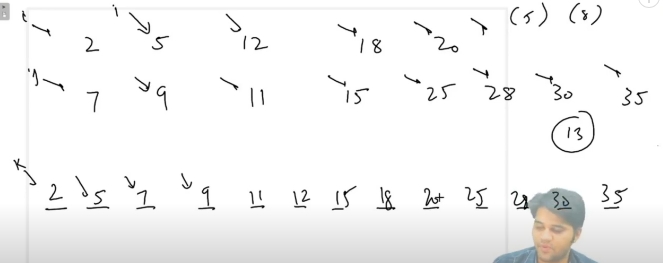 i i (5) (8)
2 5 12 18 20
j
7 9 11 15 25 28 30 35
13
K
2 5 7 9 11 12 15 18 20 25 28 30 35